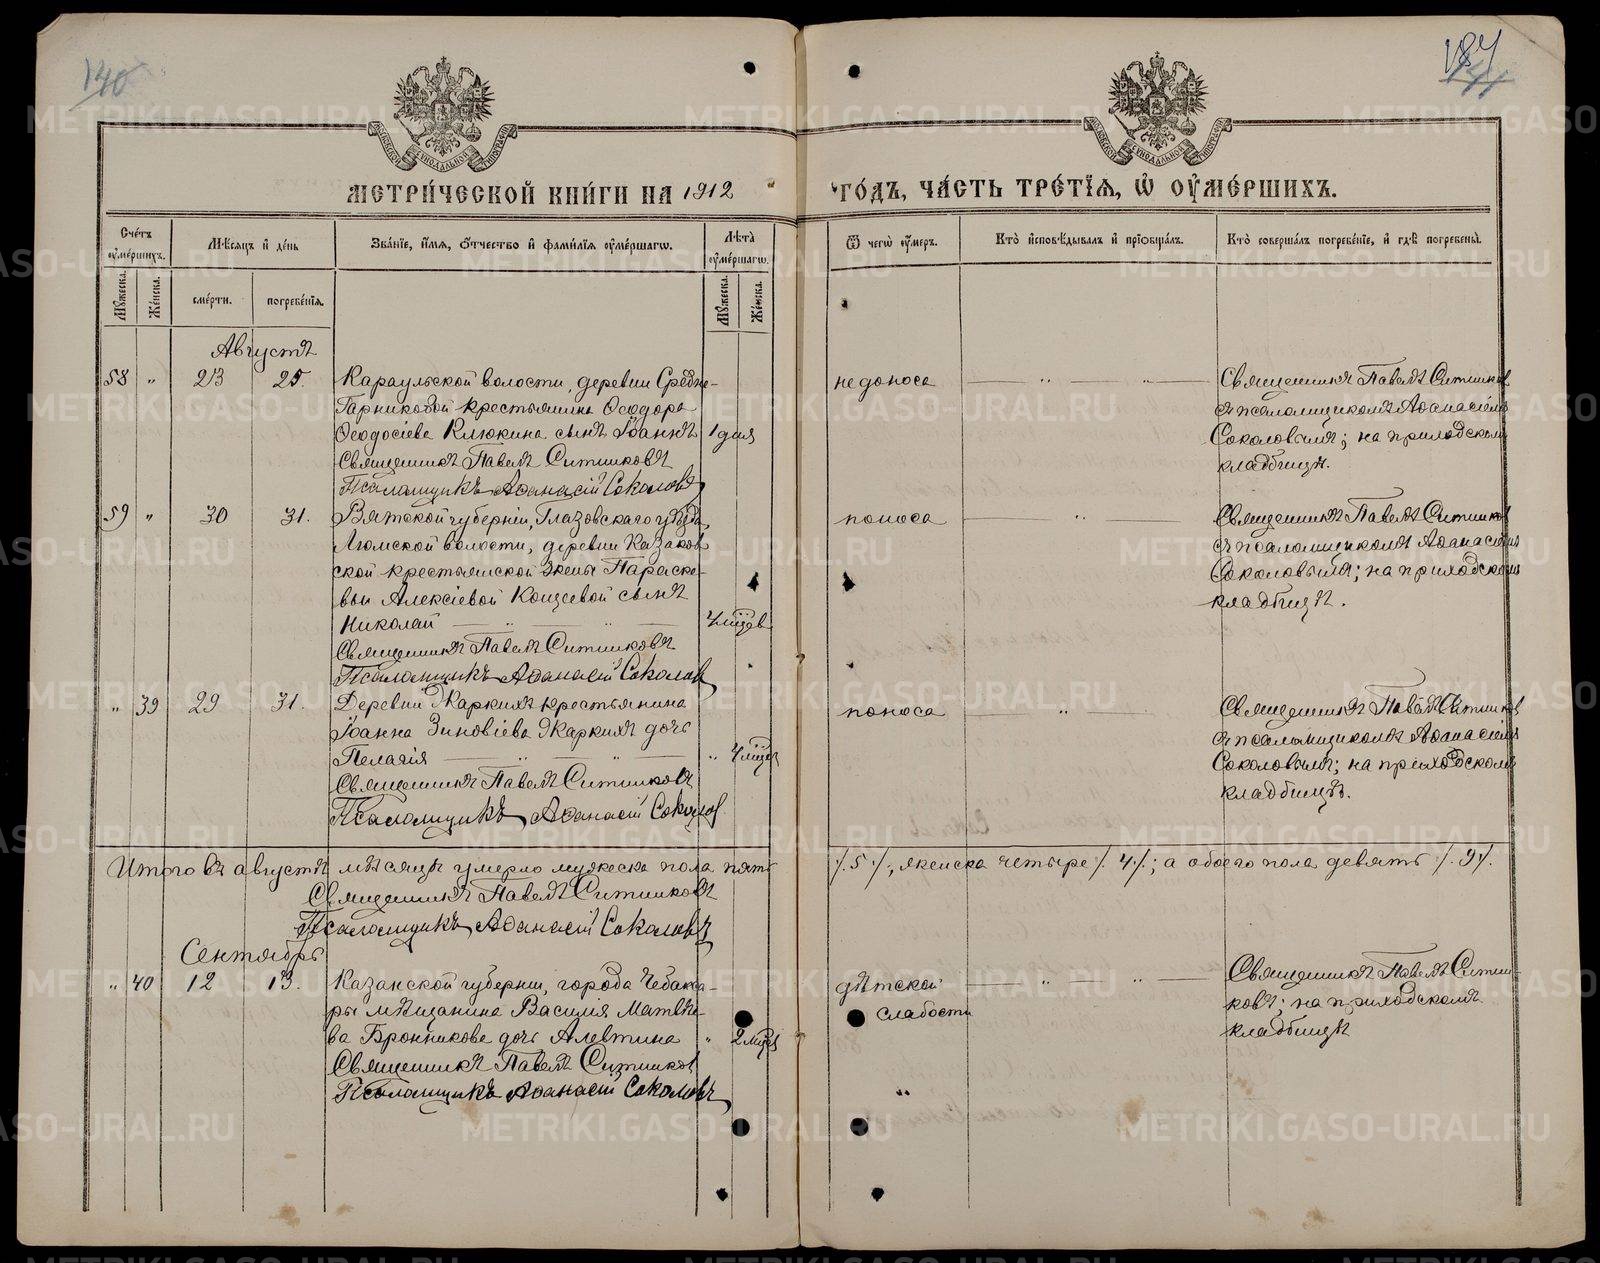 140
187
141
МЕТРИ́ЧЕСКОЙ КНИ́ГИ НА 1912
ГО́ДЪ, ЧА́СТЬ ТРЕ́ТЇѦ, Ѡ҆ ОУ҆МЕ́РШИХЪ.
Сче́тъ оу҆ме́ршихъ.
Мѣ́сяцъ и҆ де́нь
Зва́нїе, и҆́мѧ, ѻ҆́тчество и҆ фами́лїѧ оу҆ме́ршагѡ.
Лѣ́та оу҆ме́ршагѡ.
Ѿ чегѡ̀ оу҆́меръ.
Кто̀ и҆сповѣ́дывалъ и҆ прїѻбща́лъ.
Кто̀ соверша́лъ погребе́нїе, и҆ гдѣ̀ погребены̀.
Мꙋ́жеска.
Же́нска.
сме́рти.
погребе́нїѧ.
Мꙋ́жеска.
Же́нска.
Августъ
58 „ 23 25.
Караульской волости, деревни Средне-
Гарниковой крестьянина Ѳеодора
Ѳеодосіева Клюкина сынъ Іоаннъ
1 дня
Священникъ Павелъ Ситниковъ
Псаломщикъ Аѳанасій Соколовъ
недоноса
Священникъ Павелъ Ситников
съ псаломщикомъ Аѳанасіемъ
Соколовымъ; на приходскомъ
кладбищѣ.
59 „ 30 31.
Вятской губерніи, Глазовскаго уѣзда,
Люмской волости, деревни Казаков
ской крестьянской жены Параске-
вы Алексіевой Концевой сынъ
Николай
4 мѣсяц
Священникъ Павелъ Ситниковъ
Псаломщикъ Аѳанасій Соколов
поноса
Священникъ Павелъ Ситников
съ псаломщикомъ Аѳанасіемъ
Соколовымъ; на приходскомъ
кладбищѣ.
„ 39 29 31.
Деревни Жаркихъ крестьянина
Іоанна Зиновіева Жаркихъ дочь
Пелагія
„ 4 мѣсяц
Священникъ Павелъ Ситниковъ
Псаломщикъ Аѳанасій Соколов
поноса
Священникъ Павелъ Ситников
съ псаломщикомъ Аѳанасіемъ
Соколовымъ; на приходскомъ
кладбищѣ.
Итого въ августѣ мѣсяцѣ умерло мужеска пола пять
/.5./, женска четыре /.4./; а обоего пола девять /.9./.
Священникъ Павелъ Ситниковъ
Псаломщикъ Аѳанасій Соколовъ
Сентябрь
„ 40 12 13.
Казанской губерніи, города Чебакса-
ры мѣщанина Василія Матвѣе-
ва Бронникова дочь Алевтина
„ 2 мѣсяц
Священникъ Павелъ Ситников
Псаломщикъ Аѳанасій Соколовъ
дѣтской
слабости
Священникъ Павелъ Ситни-
ковъ; на приходскомъ
кладбищѣ
METRIKI.GASO-URAL.RU